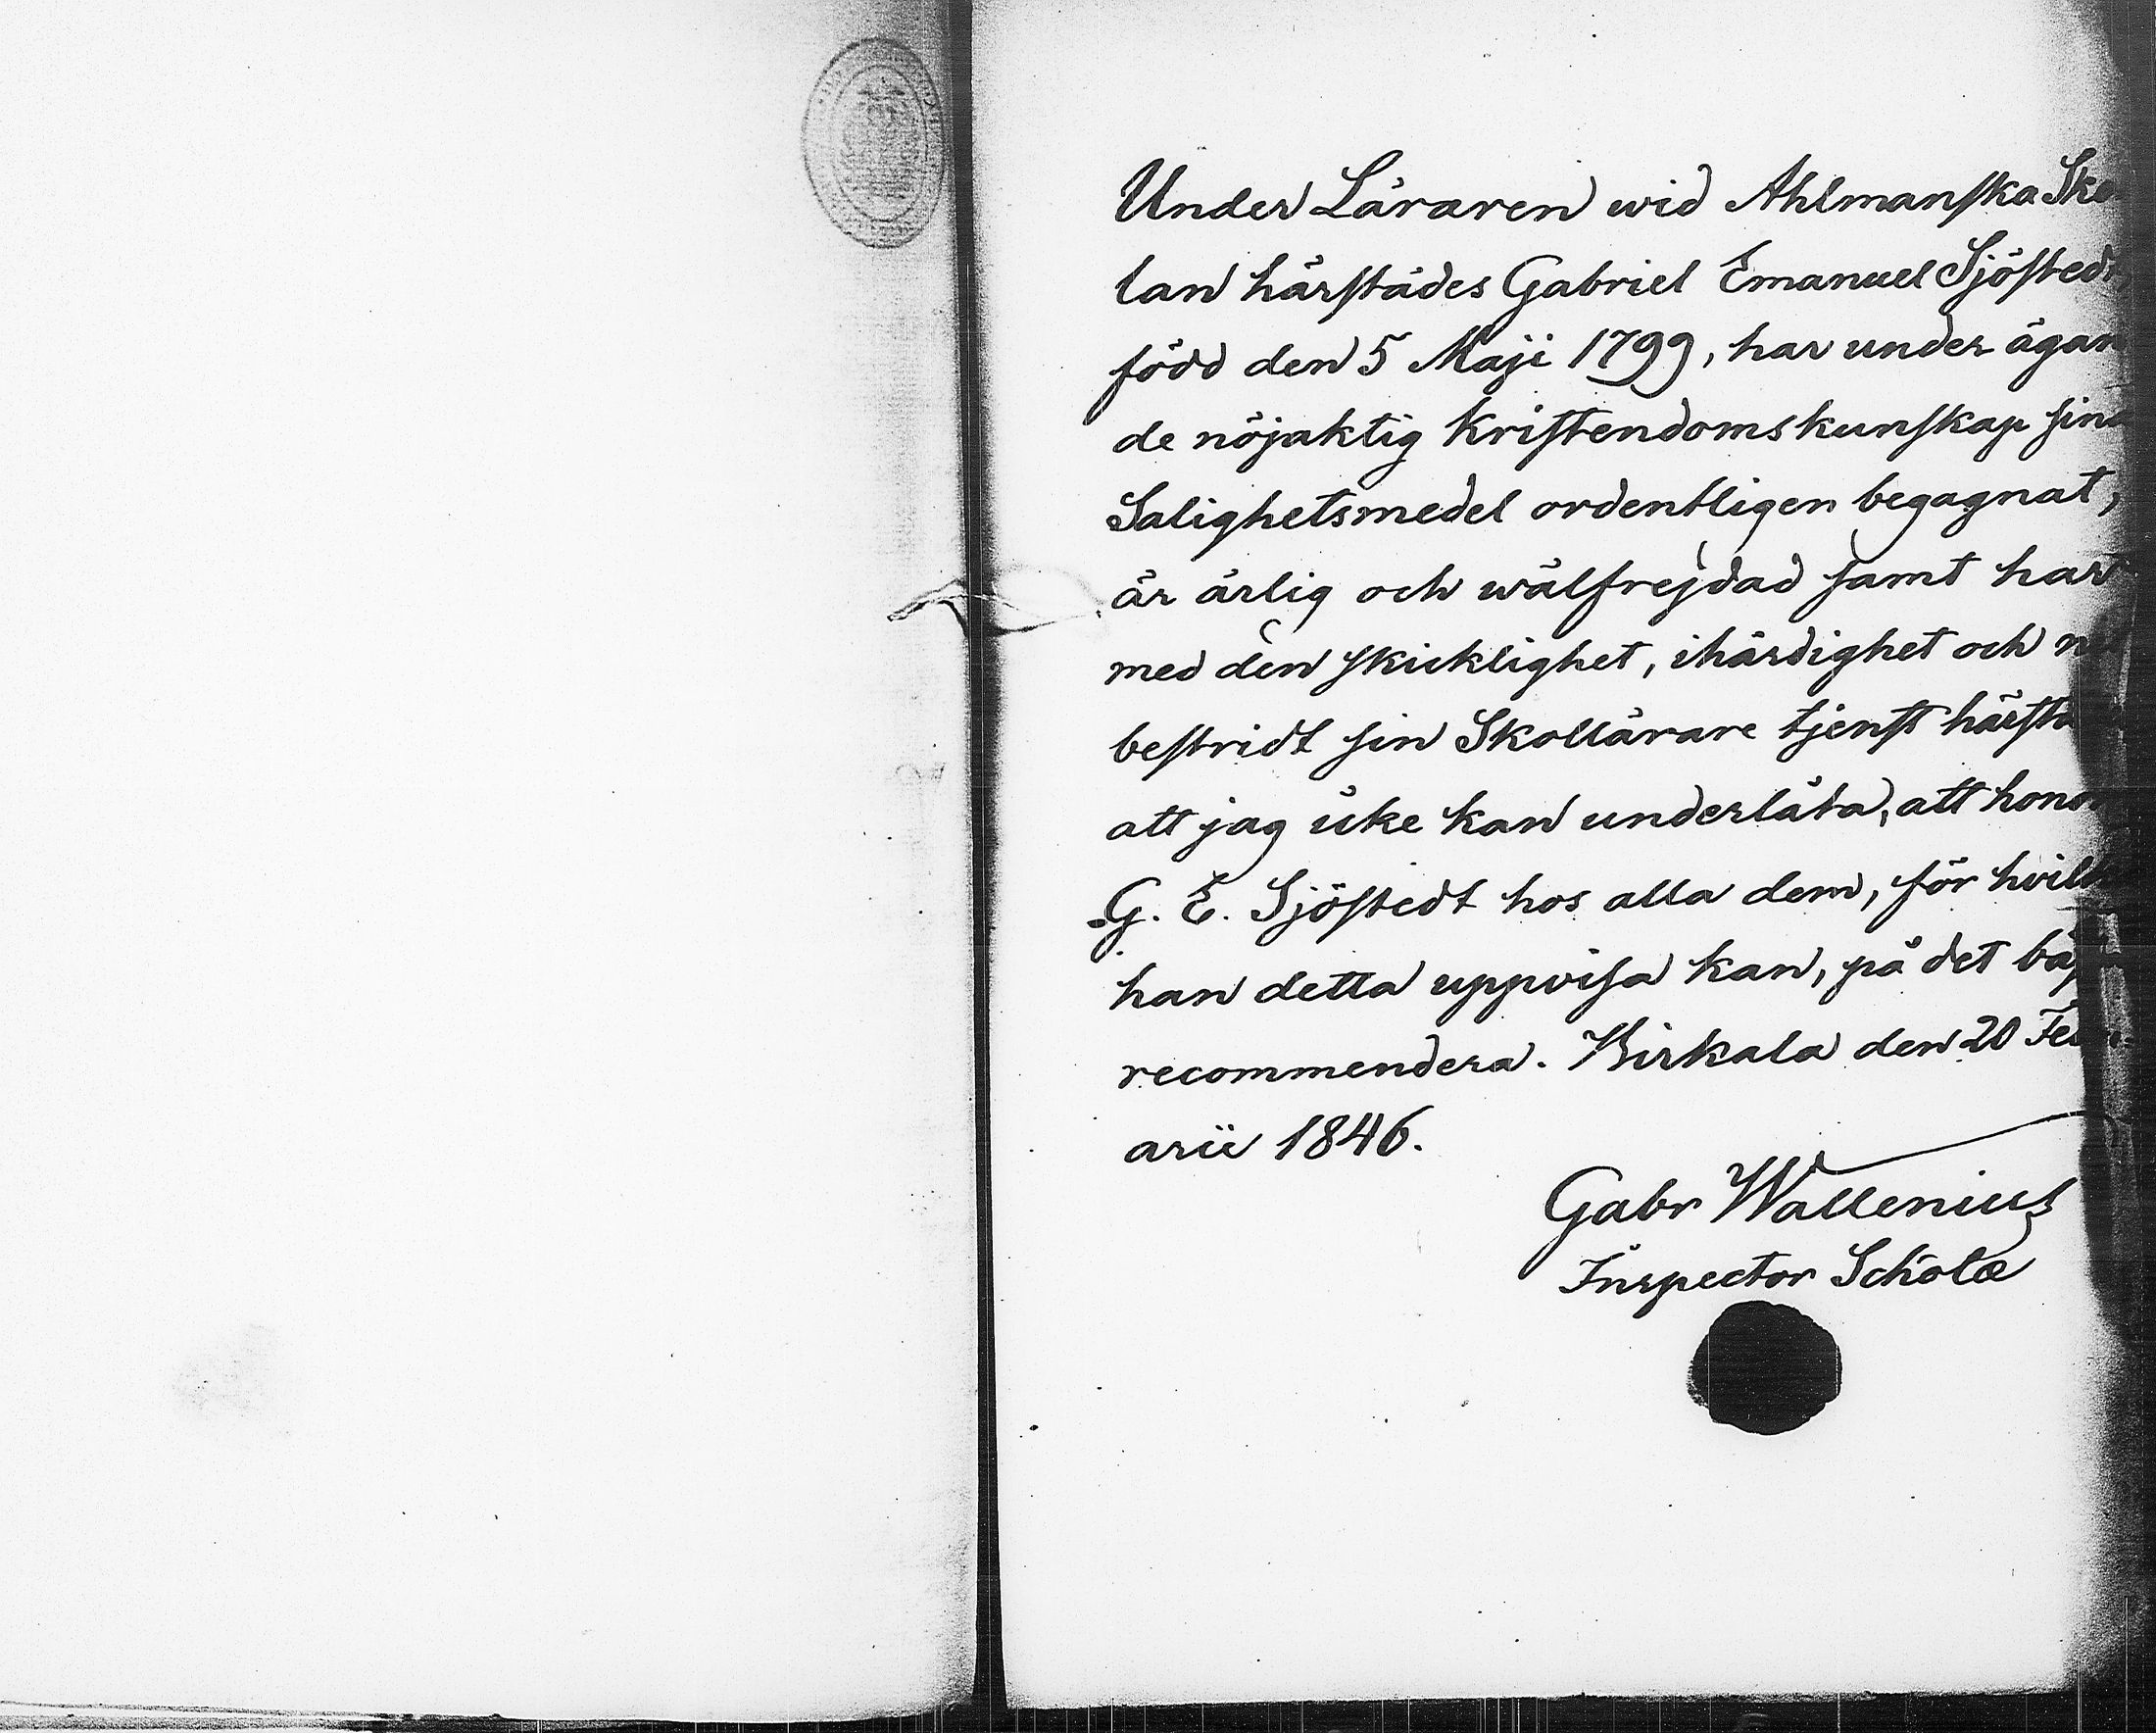 Under Läraren wid Ahlmanska Sko
lan härstädes Gabriel Emanuel Sjöstedt,
född den 5 Maji 1799, har under ägan
de nöjaktig Kristendomskunskap sina
Salighetsmedel ordentligen begagnat,
är ärlig och wälfrejdad samt har
med den skicklighet, ihärdighet och
bestridt sin Skollärare tjenst härstä
att jag icke kan underlåta, att honom
G. E. Sjöstedt hos alla dem, för hvilk
han detta uppvisa kan, på det bäs
recommendera. Birkala den 20 Febru
arii 1846.
Gabr Wallenius
Inspector Scholæ